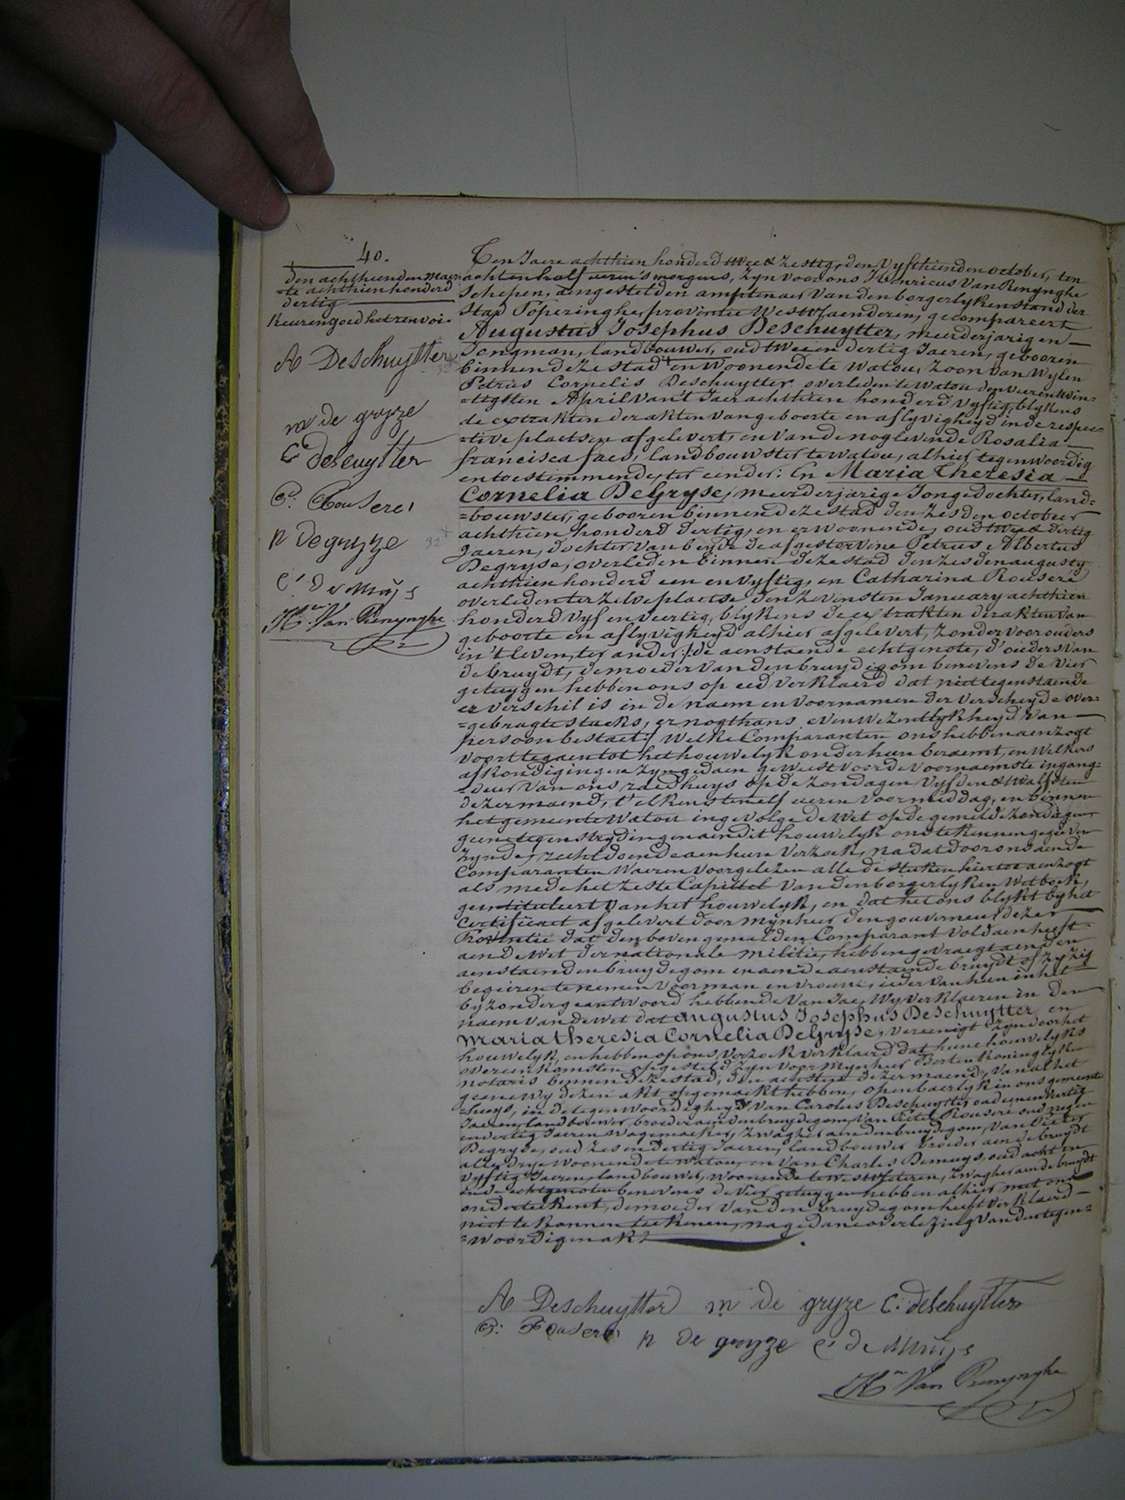 40.
den achthienden maer
te achthien honderd
dertig
Keuren goed het renvoi.
A Deschuytter
m de gryze
C. deschuytter
P. Rousere
p de gryze
C. de Muijs
Hn. Van Renynghe
Ten Jaere achthien honderd twee & zestig, den vyfthienden october, ten
achten half ueren 's morgens, zyn voor ons Henricus Van Renynghe
Schepen, aengestelden amptenaer van den borgerlyken stand der
stad Poperinghe, provintie Westvlaenderen, gecompareert
Augustus Josephus Deschuytter, meerderjarigen
Jongman, landbouwer, oud twee en dertig Jaeren, geboren
binnen deze stad en woonende te Watou, zoon van wylen
Petrus Cornelis Deschuytter overleden te Watou den vier en twin-
=tigsten April van 't Jaer achthien honderd vyftig, blykens
de extrakten der akten van geboorte en aflyvigheyd in de respec-
=tive plaetsen afgelevert, en van de nog levende Rosalia
francisca faes, landbouwster te Watou, alhier tegenwoordig
en toestemmende, ter eender: En Maria Theresia
Cornelia DeGryse, meerderjarige Jonge dochter, land-
=bouwster, geboren binnen deze stad den zesden october
achthien honderd dertig, en er woonende, oud twee & dertig
Jaeren, dochter van beyde de afgestorvene Petrus Albertus
Degryse, overleden binnen deze stad den zesden augusty
achthien honderd een en vyftig, en Catharina Rousere
overleden ter zelve plaetse den zevensten January achthien
honderd vyf en veertig, blykens de extrakten der akten van
geboorte en aflyvigheyd alhier afgelevert, zonder voorouders
in 't leven, ter ander: de aenstaende echtgenote, d'ouders van
de bruydt, de moeder van den bruydegom benevens de vier
getuygen hebben ons op eed verklaerd dat niettegenstaende
er verschil is in de naem en voornamen der verscheyde over-
=gebragte stucks, er nogthans evenwezentlykheyd van
persoon bestaet; Welke Comparanten ons hebben aenzogt
voorttegaen tot het houwelyk onder hun beraemt, en welkers
afkondigingen zyn gedaen geweest voor de voornaemste ingang-
=deur van ons raedhuys op de zondagen vyfden & twalfsten
dezer maend, t'elkens ten elf ueren voormiddag, en binnen
het gemeente Watou ingevolge de wet op de gemelde zondagen
geene tegenstrydingen aen dit houwelyk ons te kennen gegeven
zynde, recht doende aen hun verzoek, na dat door ons aen de
Comparanten waeren voorgelezen alle de stucken hiertoe aenzogt
als mede het zeste Capittel van den borgerlyken Wetboek,
geintituleert van het houwelyk, en dat het ons blykt by het
Certificaet afgelevert door mynheer den gouverneur dezer
Provintie dat den bovengemelden Comparant voldaen heeft
aen de wet der nationale militie, hebben gevraegt aen den
aenstaenden bruydegom en aen de aenstaende bruydt of zy zig
begeeren te nemen voor man en vrouw, ieder van hun in het
byzonder geantwoord hebbende van Jae, Wy verklaeren in den
naem van de wet dat Augustus Josephus DeSchuytter en
Maria Theresia Cornelia DeGryse, vereenigt zyn door het
houwelyk, en hebben op ons verzoek verklaerd dat hune houwelyks
overeenkomsten opgesteld zyn voor Mynheer Berten koninglyken
notaris binnen deze stad, den achtsten dezer maend, Van al het
geene wy dezen akt opgemaekt hebben, openbaerlyk in ons gemeente
=huys, in de tegenwoordigheyd van Carolus Deschuytter oud een en veertig
Jaeren, landbouwer, broeder aen den bruydegom, van Pieter Rousere oud negen
en dertig Jaeren wagemaeker, zwager aen den bruydegom, van Pieter
Degryse, oud zes en dertig Jaeren, landbouwer, broeder aen de bruydt
alle drye woonende te Watou, en van Charles Demuys, oud acht en
vyftig Jaeren, landbouwer, woonende te Westvleteren, zwager aen de bruydt
en de echtgenoten benevens de vier getuygen hebben alhier met ons
onderteekent, de moeder van den bruydegom heeft verklaerd
niet te konnen teekenen, na gedane overlezing van den tegen=
=woordigen akt
A Deschuytter m de gryze C. deschuytter
P. Rousere p de gryze C. de Muijs
Hn Van Renynghe